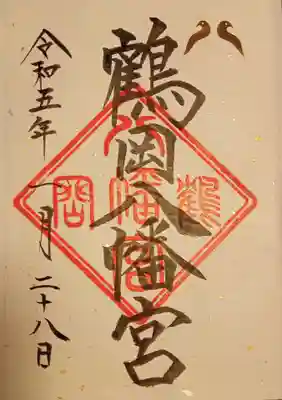 鶴岡八幡宮
鶴
八幡宮
岡
令和五年 一月 二十八日